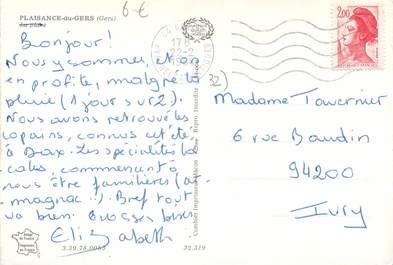 6 €
PLAISANCE-du-GERS (Gers)
Bonjour!
Nous y sommes, et on
en profite, malgré la
pluie (1 jour sur 2).
Nous avons retrouvé les
copains, connus cet été
à Dax. Les spécialités lo-
cales, commencent à
nous être familières (ar-
magnac..) Bref tout
va bien. Grosses bises
Elisabeth
3.39.78.0085
32.319
Combier Imprimeur Mâcon
2,00
32)
Madame Tavernier
6 rue Baudin
94200
Ivry